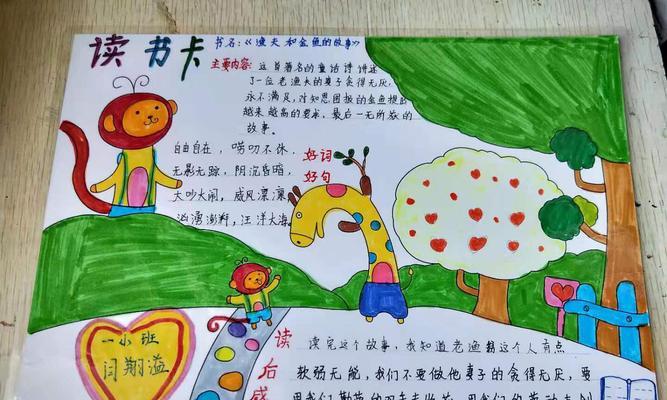 读书卡
书名:《渔夫和金鱼的故事》
主要内容: 这首著名的童话诗讲述
了一位老渔夫的妻子贪得无厌,
永不满足,对知恩图报的金鱼想出
越来越高的要求,最后一无所获的
故事。
好词
好句
自由自在,唠叨不休,
无影无踪,阴沉昏暗,
大吵大闹,威风凛凛
汹涌澎湃,汪洋大海
一小班
闫翔溢
读
后
感
读完这个故事,我知道老渔翁这个人有点
软弱无能,我们不要做他妻子的贪得无厌,要
用我们勤劳的双手去收获,用我们的劳动去创